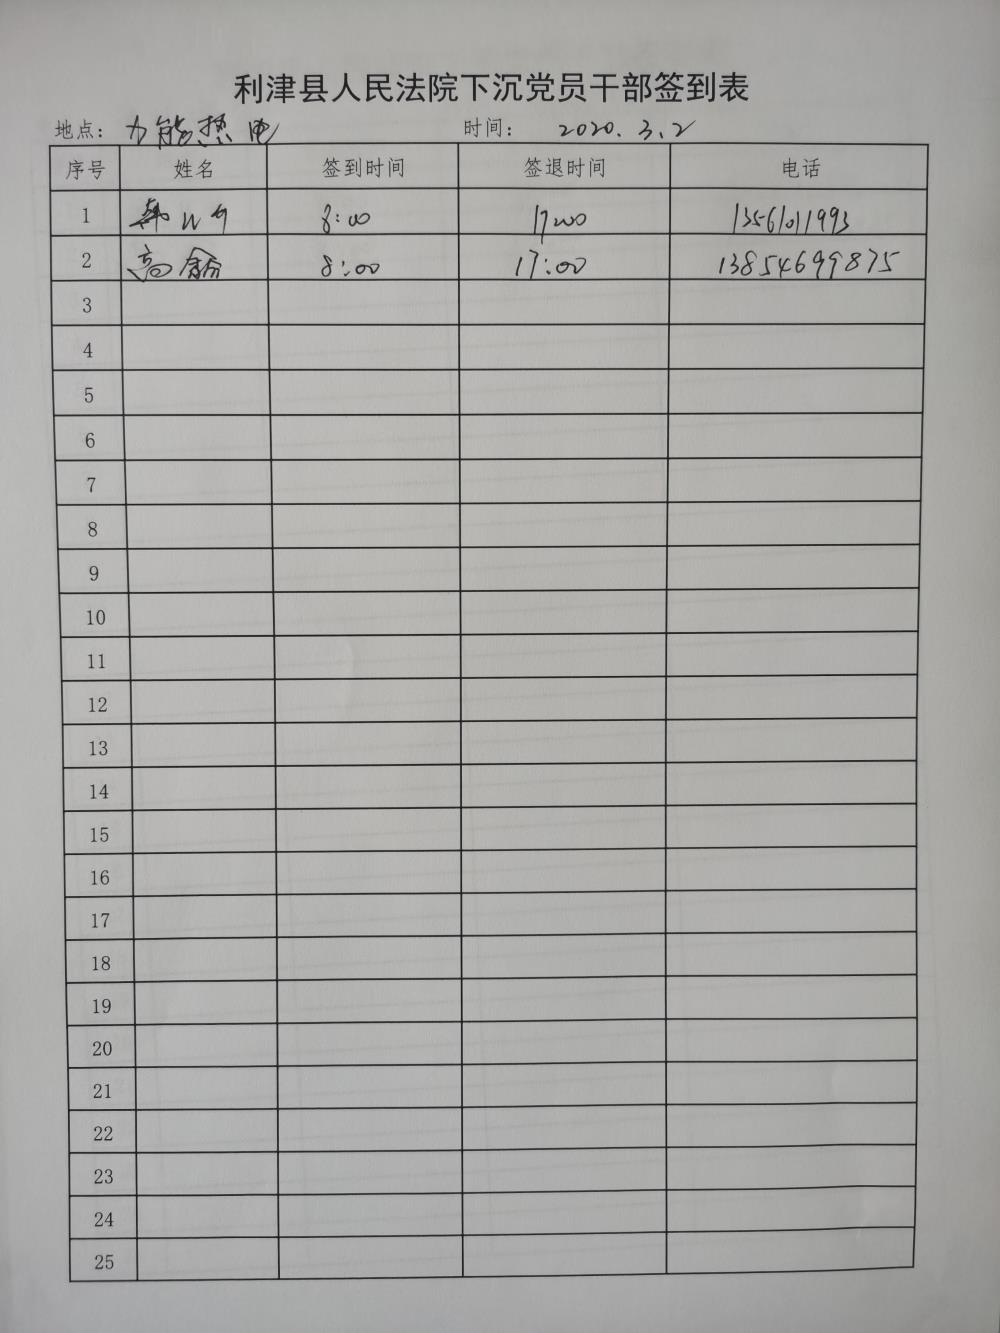 利津县人民法院下沉党员干部签到表
地点：力能热电 时间：2020.3.2
序号 姓名 签到时间 签退时间 电话
1 8:00 17:00 13561011993
2 高 8:00 17:00 13854699875
3
4
5
6
7
8
9
10
11
12
13
14
15
16
17
18
19
20
21
22
23
24
25